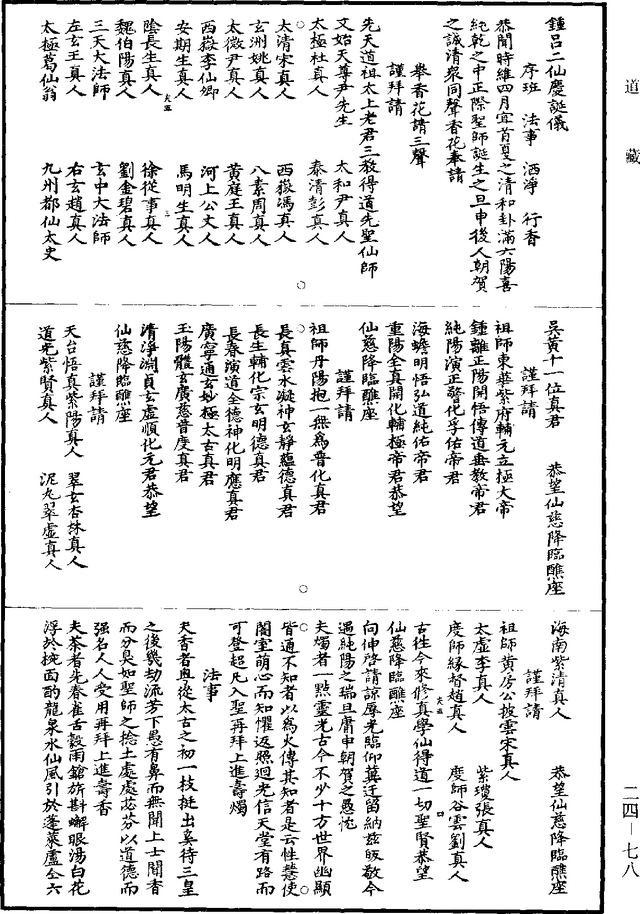 道藏
鍾呂二仙慶誕儀
序班　法事　洒淨　行香
恭聞時維四月宜首夏之清和卦滿六陽喜
純乾之中正際聖師誕生之旦申後人朝賀
之誠清衆同聲香花奉請
舉香花請三聲
謹拜請
先天道祖太上老君三教得道先聖仙師
文始天尊尹先生　太和尹真人
太極杜真人　泰清彭真人
太清宋真人　西嶽馮真人
玄洲姚真人　八素周真人
太微尹真人　黃庭王真人
西嶽李仙卿　河上公丈人
安期生真人　馬明生真人
陰長生真人　徐從事真人
魏伯陽真人　劉金碧真人
三天大法師　玄中大法師
左玄王真人　右玄趙真人
太極葛仙翁　九州都仙太史
吳黃十一位真君　恭望仙慈降臨醮座
謹拜請
祖師東華紫府輔元立極大帝
鍾離正陽開悟傳道垂教帝君
純陽演正警化孚佑帝君
海蟾明悟弘道純佑帝君
重陽全真開化輔極帝君恭望
仙慈降臨醮座
謹拜請
祖師丹陽抱一無為普化真君
長真雲水凝神玄靜蘊德真君
長生輔化宗玄明德真君
長春演道全德神化明應真君
廣寧通玄妙極太古真君
玉陽體玄廣慈普度真君
清淨淵貞玄虛順化元君恭望
仙慈降臨醮座
謹拜請
天台悟真紫陽真人　翠玄杏林真人
道光紫賢真人　泥丸翠虛真人
海南紫清真人　恭望仙慈降臨醮座
謹拜請
祖師黃房公披雲宋真人
太虛李真人　紫瓊張真人
度師緣督趙真人　度師谷雲劉真人
古往今來修真學仙得道一切聖賢恭望
仙慈降臨醮座
向伸啓請諒辱光臨仰冀迂留納茲皈敬今
遇純陽之瑞旦庸申朝賀之愚忱
夫燭者一點靈光古今不少十方世界幽顯
皆通不知者以為火傳其知者是云性慧使
闇室萌心而知懼返照迴光信天堂有路而
可登超凡入聖再拜上進壽燭
法事
夫香者奥從太古之初一枝挺出奚待三皇
之後幾劫流芳下愚有鼻而無聞上士聞香
而分臭如聖師之捻土處處苾芬以道德而
强名人人受用再拜上進壽香
夫茶者先春雀舌穀雨鎗旂斟蠏眼湯白花
浮於椀面酌龍泉水仙風引於蓬萊盧仝六
二四—七八